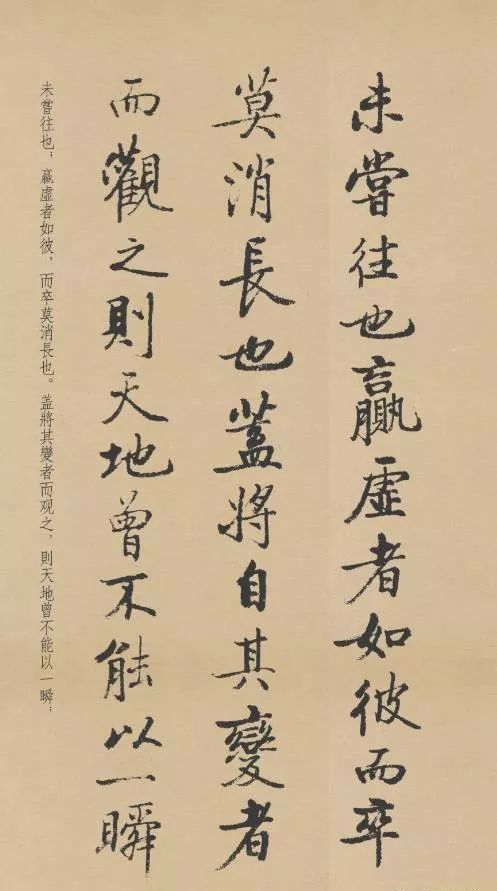 未嘗往也贏虛者如彼而卒
莫消長也蓋將自其變者
而觀之則天地曾不能以一瞬
未嘗往也；嬴虛者如彼，而卒莫消長也。蓋將其變者而观之，則天地曾不能以一瞬；